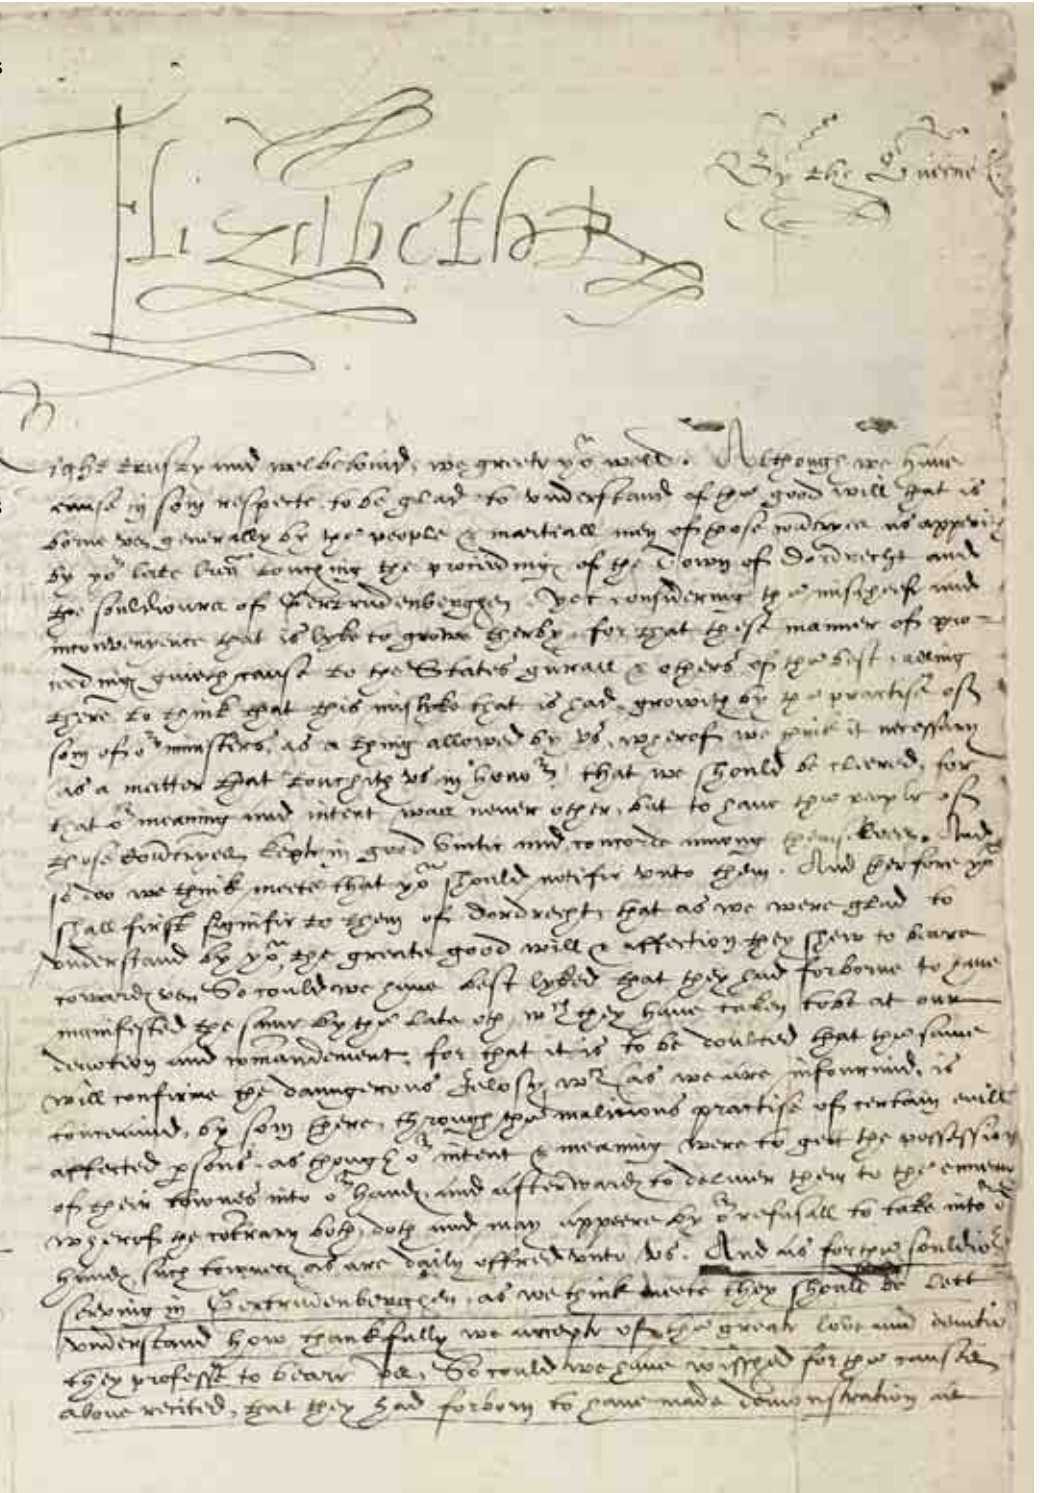 Elizabeth R
By the Quene
Right trusty and welbeloued, we greete yow well. Although we haue
cause in som respecte to be glad to vnderstand of the good will that is
borne vs generally by the people & martiall men of those as apperith
by yor late touching the proceding of the Town of Dordrecht and
the souldiours of Gertrudenberghen. Yet considering the mischeif and
inconuenience that is lyke to growe therby, for that these manner of pro-
ceding giueth cause to the States generall & others of the best
there to think that this mislyke that is had, groweth by the practise of
som of or ministers, as a thing allowed by vs, wherof we think it necessary
as a matter that toucheth vs in honor, that we should be cleered, for
that or meaning and intent was neuer other, but to haue the people of
those kept in good vnitie and concorde among them selues. And
so doo we think meete that yow should notifie vnto them. And therfore yow
shall first signifie to them of Dordrecht, that as we were glad to
vnderstand by yow, the greate good will & affection they shew to beare
towards vs. So could we haue best lyked that they had forborne to haue
manifested the same by the late oth, wch they haue taken to be at our
deuotion and comandement, for that it is to be doubted that the same
will confirme the daungerous Jelosy, wch as we are infourmed, is
conceiued, by som there, through the malicious practise of certain euill
affected psons, as though or intent & meaning were to gett the possession
of their townes into or handes, and afterwards to deliuer them to the enemy
wherof the contrary both, doth and may appeere by or refusall to take into or
handes such townes as are daily offred vnto vs. And as for the souldiors
seruing in Gertrudenberghen, as we think meete they should be lett
vnderstand how thankfully we accepte of the greate loue and deuotion
they professe to beare vs, So could we haue wisshed for the causes
aboue recited, that they had forborn to haue made demonstration as